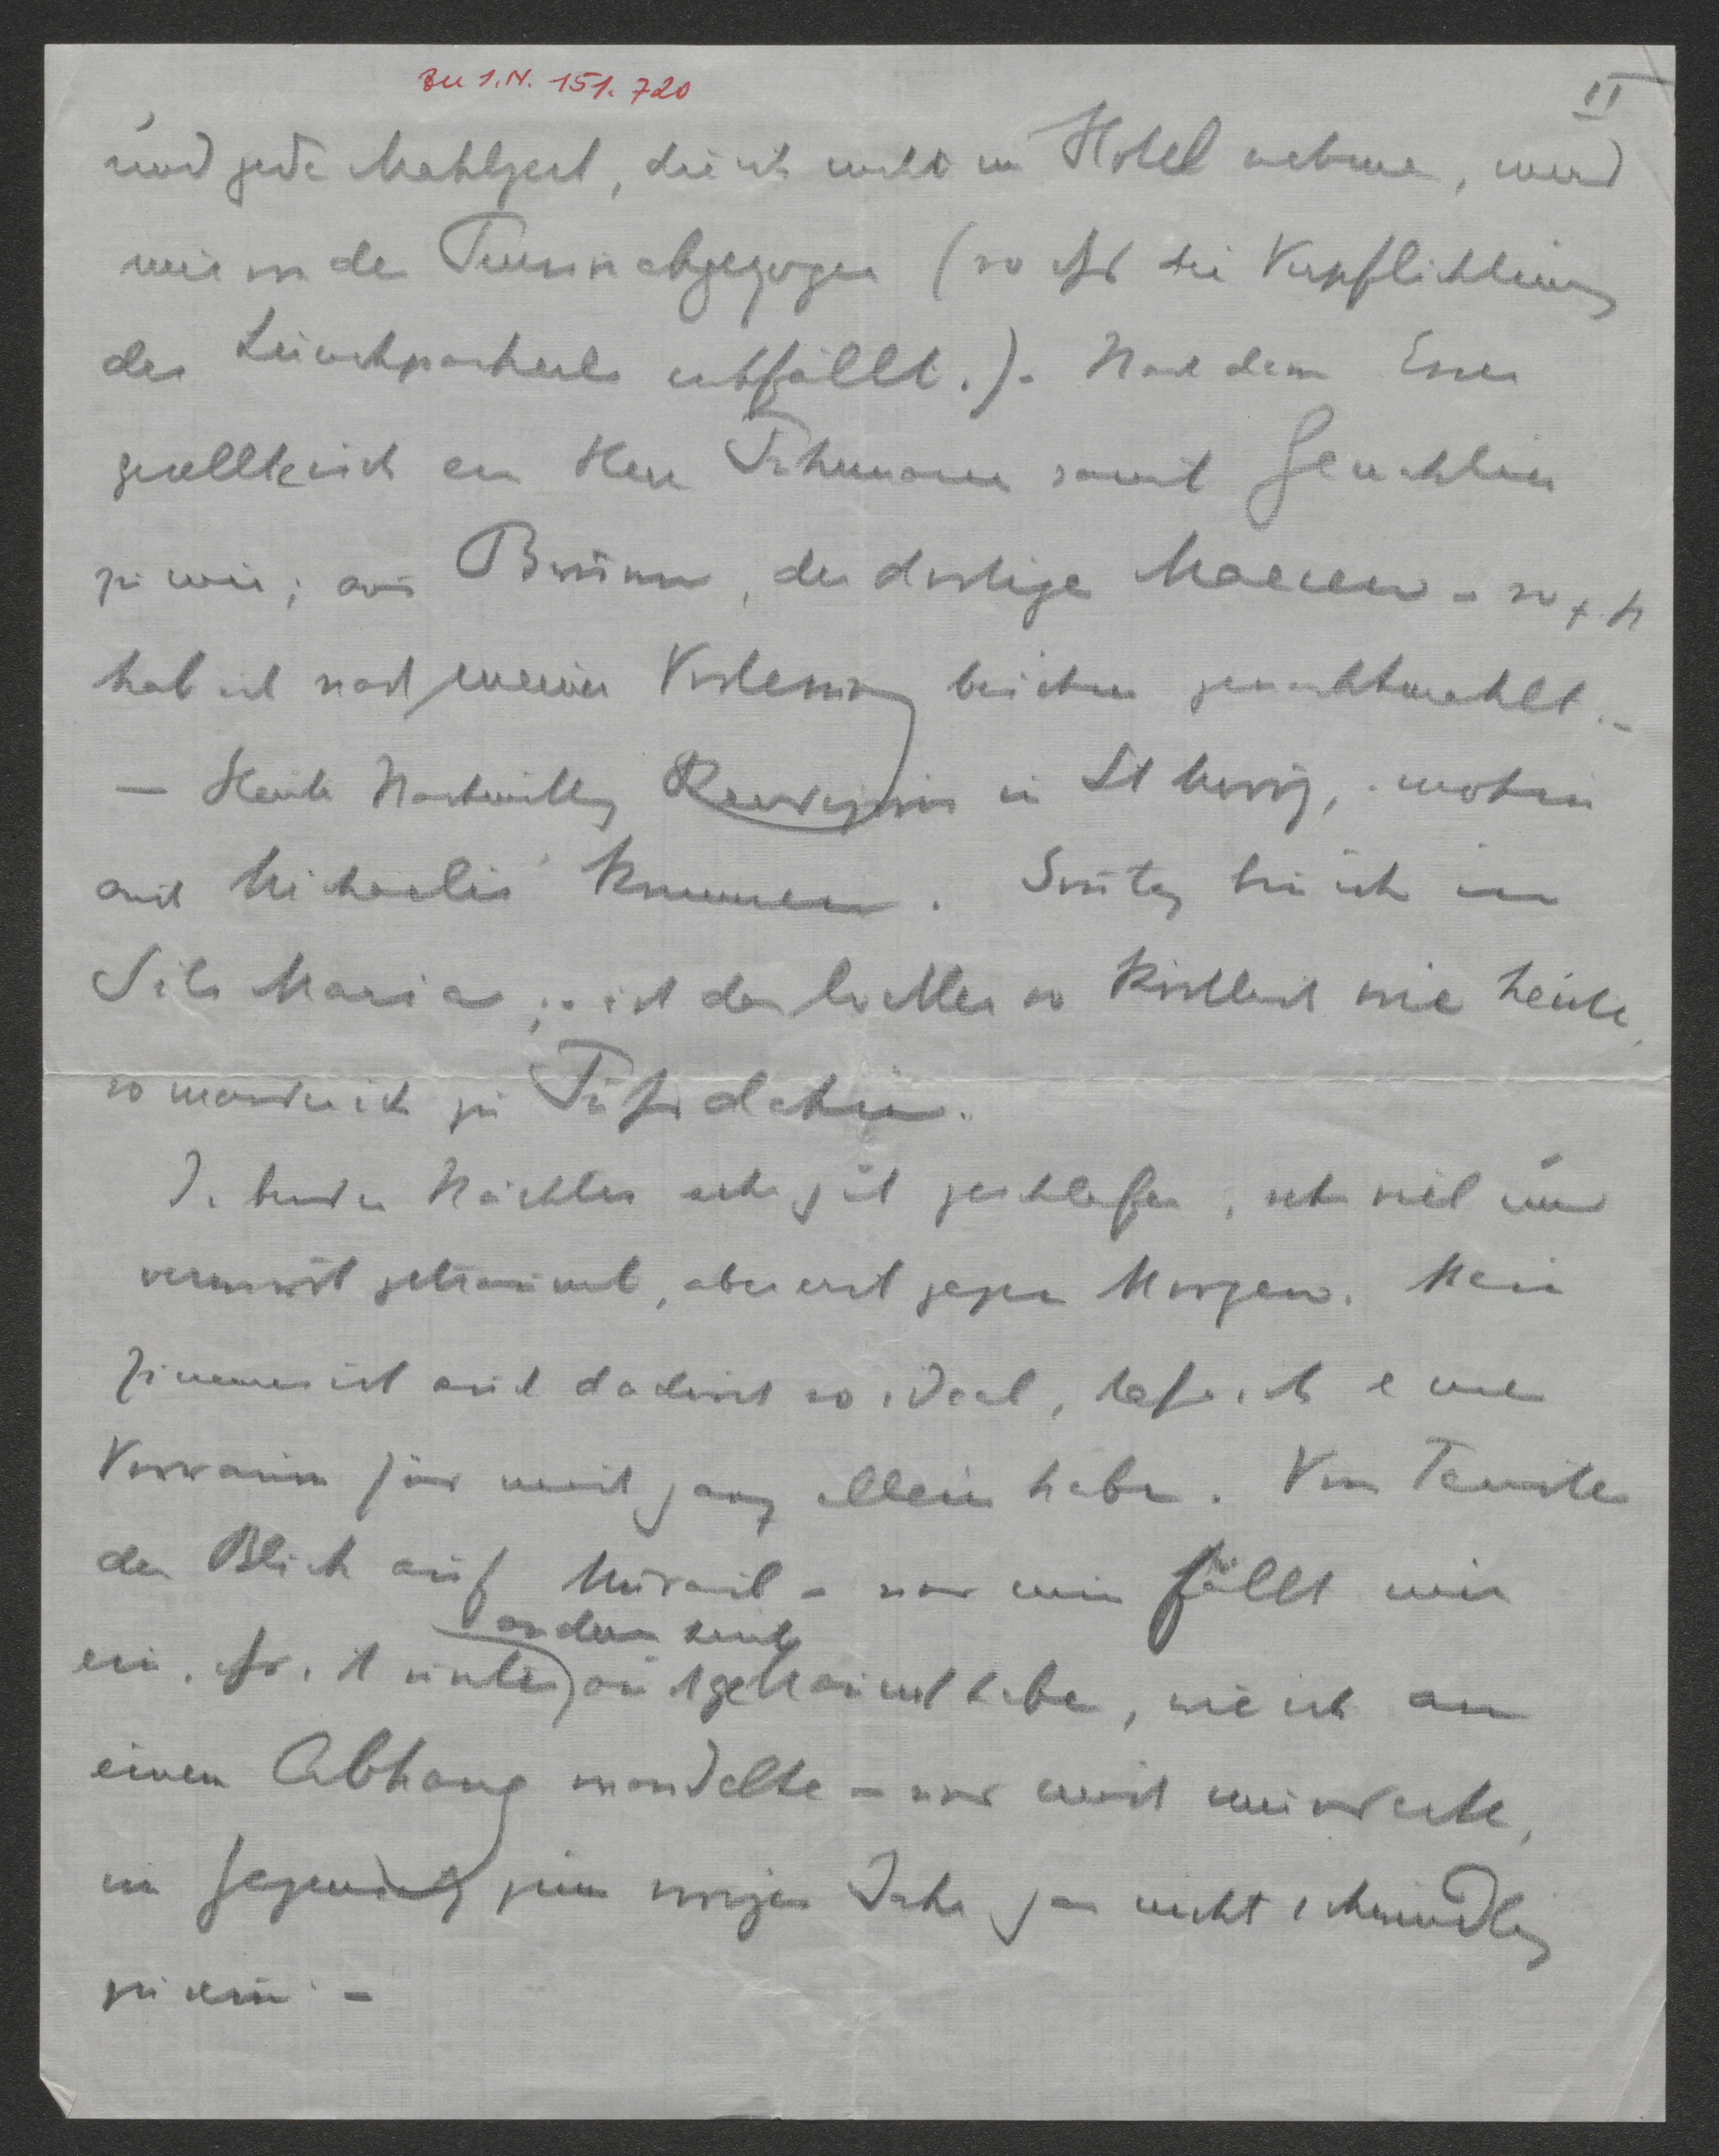 Zu I.N. 151.720
II
und jede Mahlzeit, die ich nicht im Hotel nehme, wird
mir in der Pension abgezogen (so dass die Verpflichtung
des Lunchpackerls entfällt.). Nach dem Essen
gesellte sich ein Herr Fuhrmann samt Gemahlin
zu mir; aus Brünn, der dortige Maecen –
hab ich nach meiner Vorlesung bei ihm genachtmahlt. –
– Heute Nachmittag Rendezvous in St Moriz, wohin
auch Michaelis kommen. Sonntag bin ich in
Sils Maria; ist das Wetter so köstlich wie heute,
so wandre ich zu Fuß dahin.
Die beiden Nächte sehr gut geschlafen, sehr viel und
verworrn geträumt, aber erst gegen Morgen. Mein
Zimmer ist auch dadurch so ideal, dass ich einen
Vorraum für mich ganz allein habe. Vom Fenster
der Blick auf Muraigl – nun fällt mir
ein, dass ich unter anderm heut
auch geträumt habe, wie ich an
einem Abhang wandelte – und mich wunderte,
im Gegensatz zum vorigen Jahr gar nicht schwindlig
zu sein –